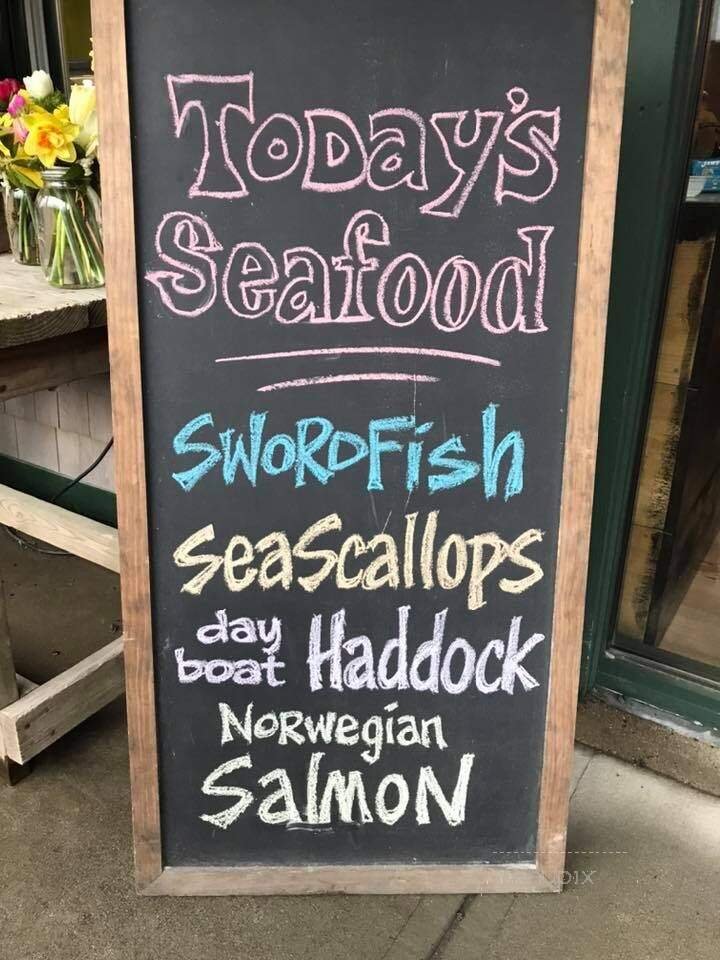 Today's
Seafood
Swordfish
Sea Scallops
day boat Haddock
Norwegian
Salmon